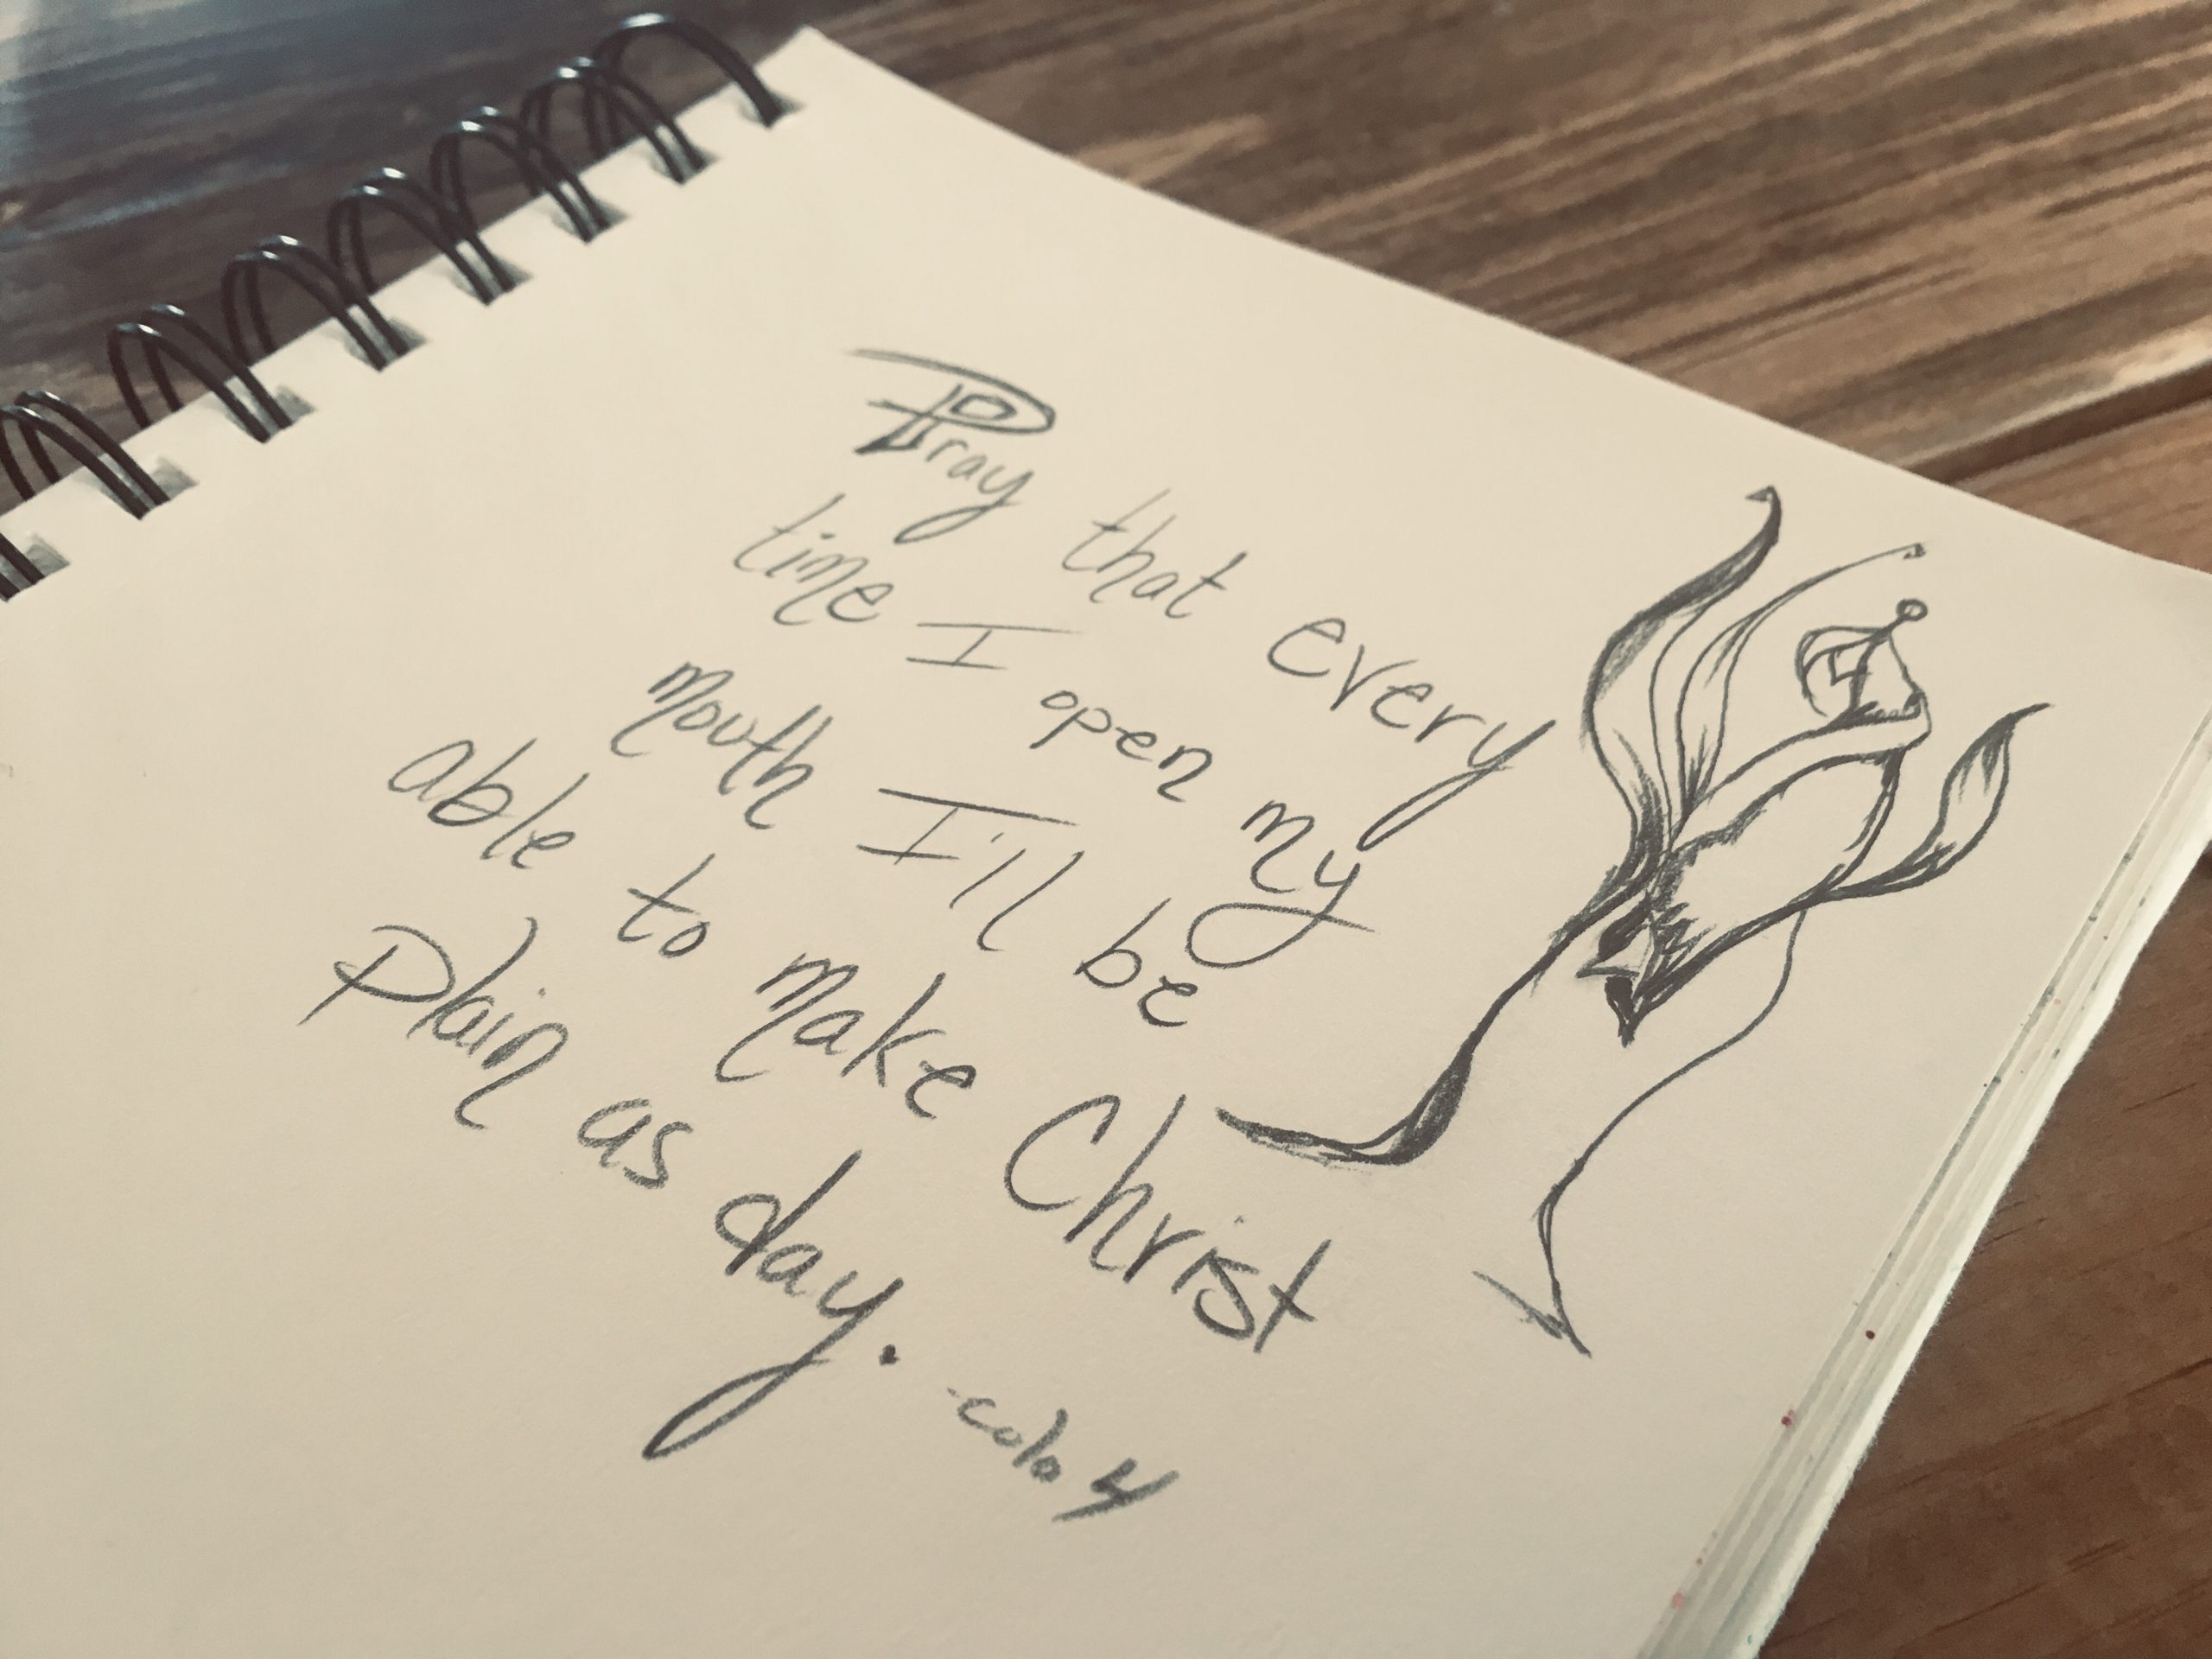 Pray that every
time I open my
mouth I'll be
able to make Christ
Plain as day.
-colo 4